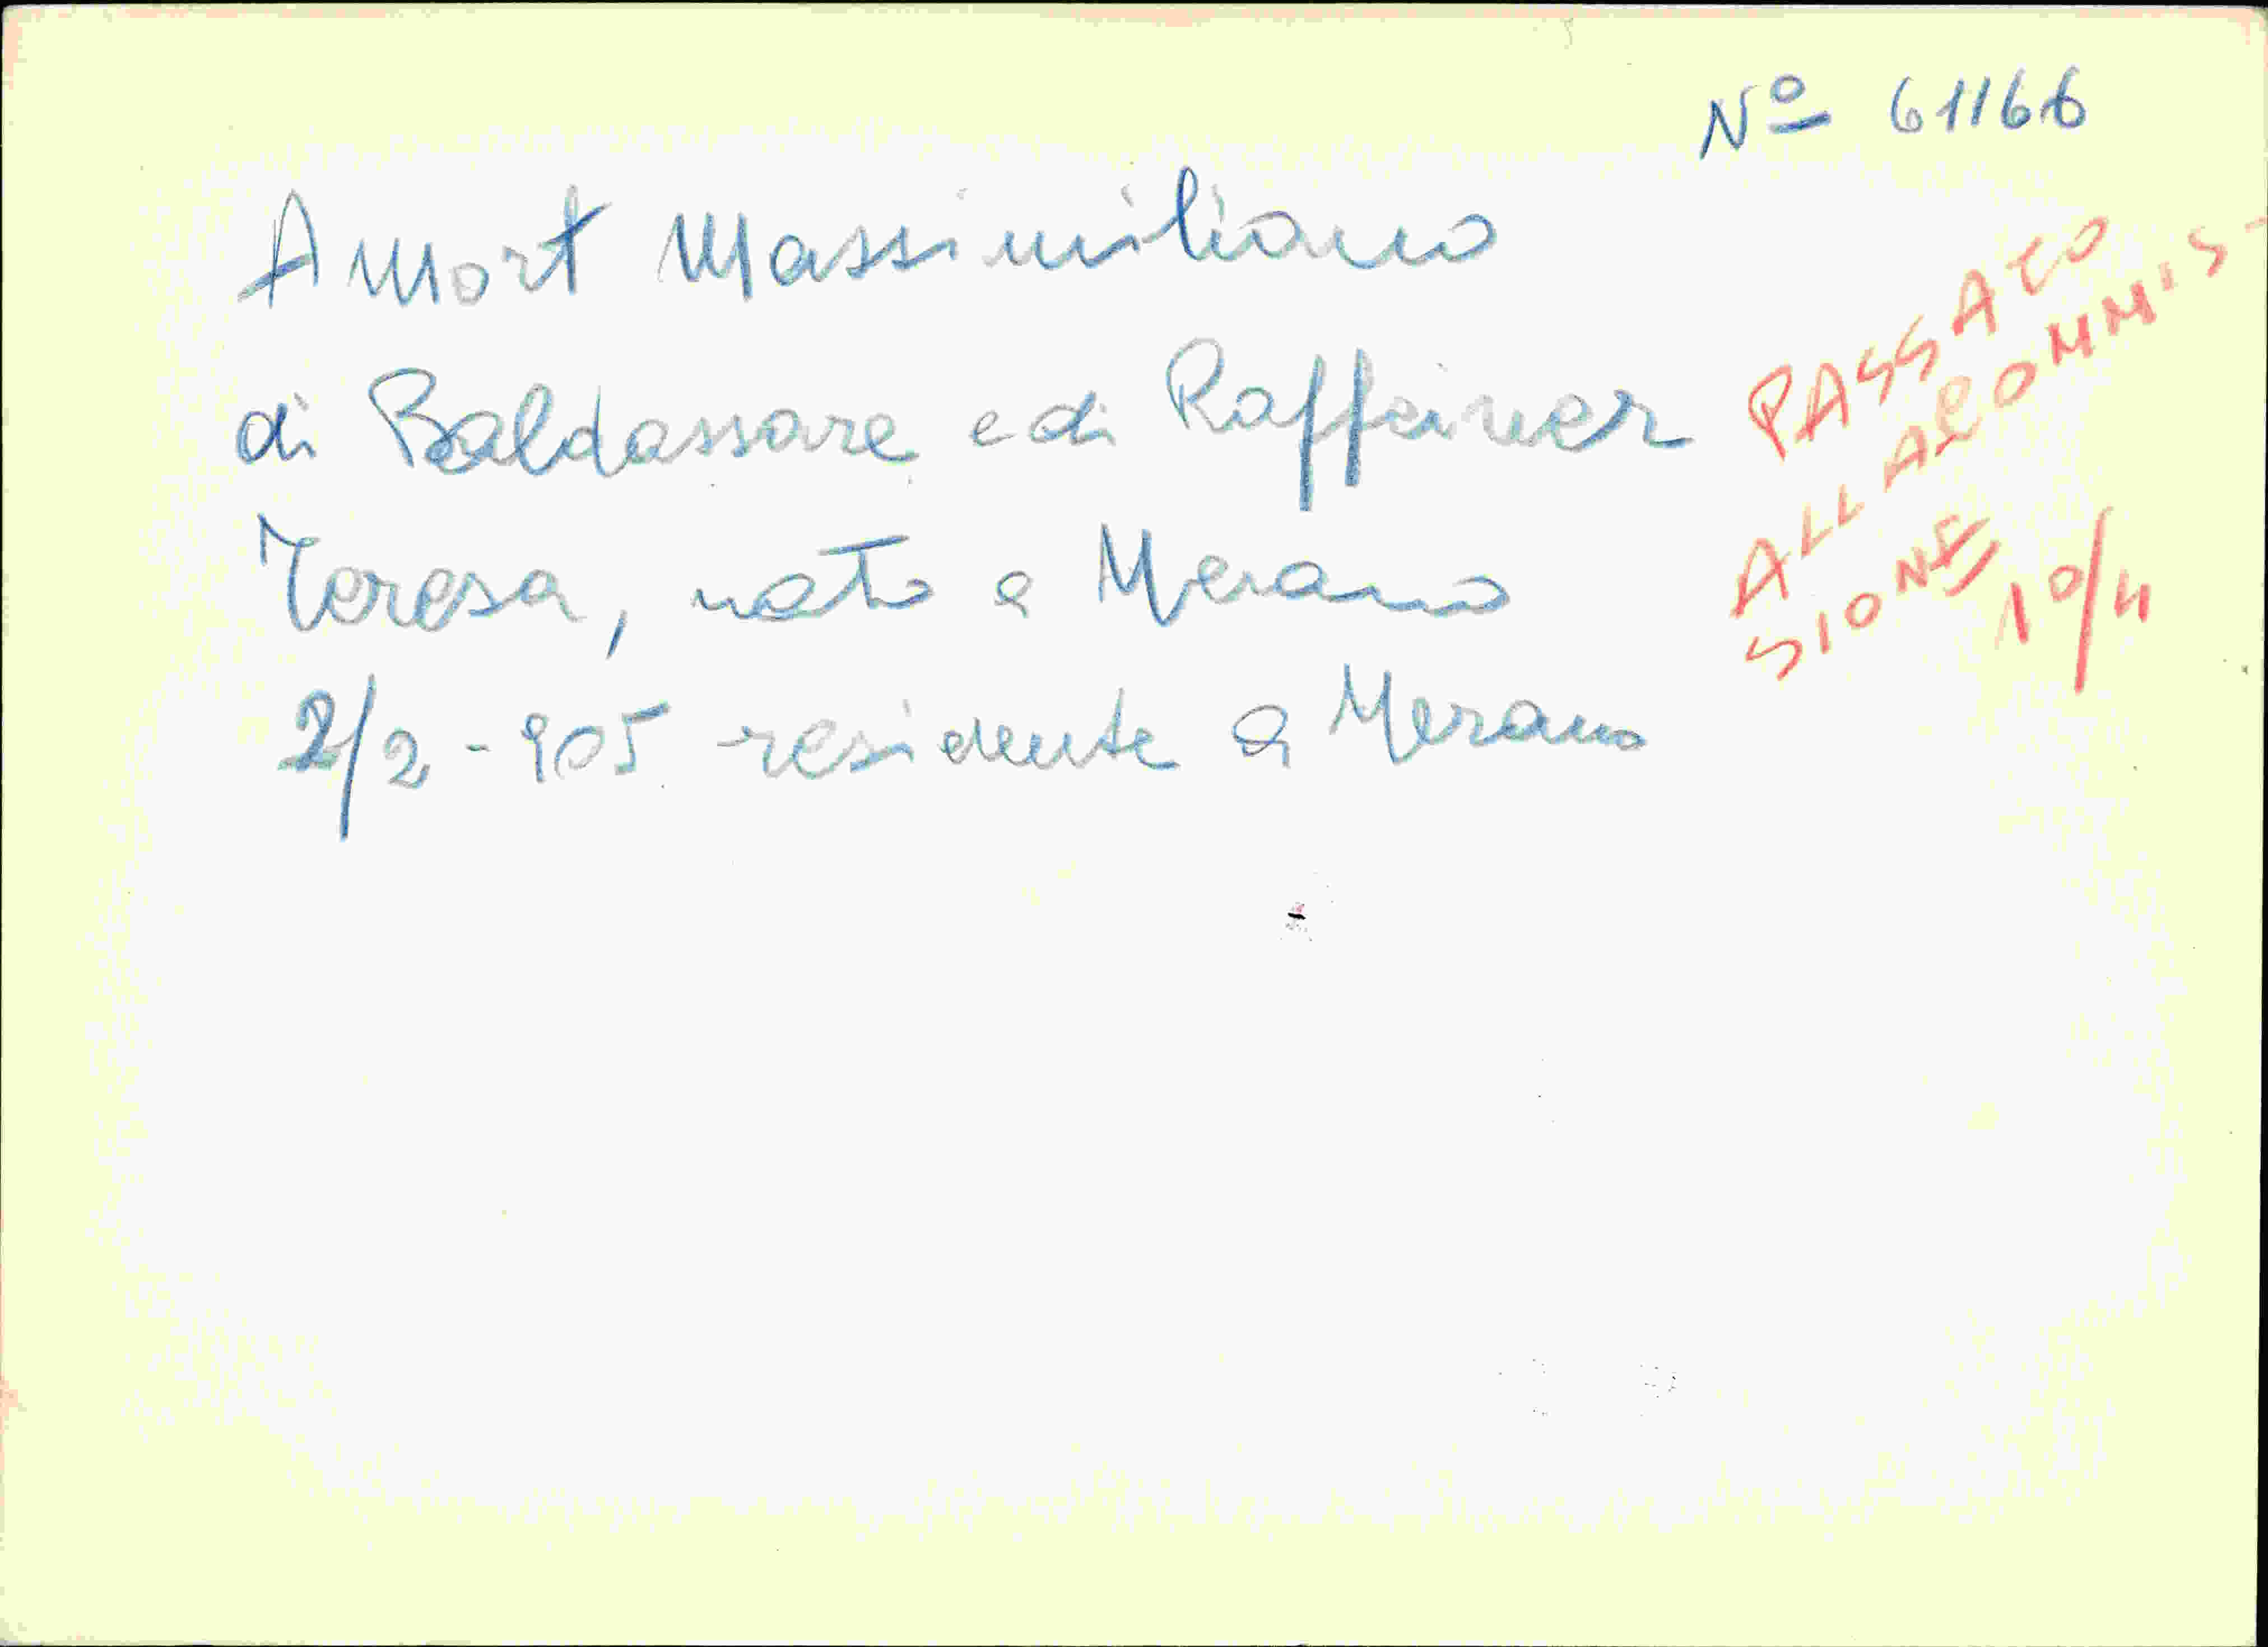 Nº 61166
Amort Massimiliano
di Baldassare e di Raffeiner
Teresa, nato a Merano
2/2-905 residente a Merano
PASSATO
ALLA COMMIS-
SIONE
10/4